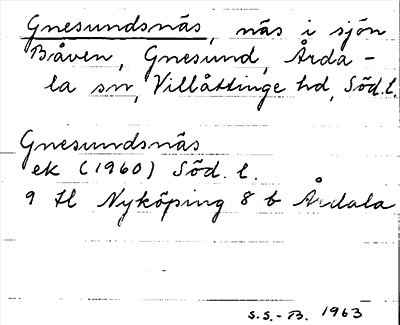 Gnesundsnäs, näs i sjön
Båven, Gnesund, Årda-
la sn, Villåttinge hd, Söd.l.
Gnesundsnäs
ek (1960) Söd. l.
9 H Nyköping 8 b Årdala
S.S.-B. 1963